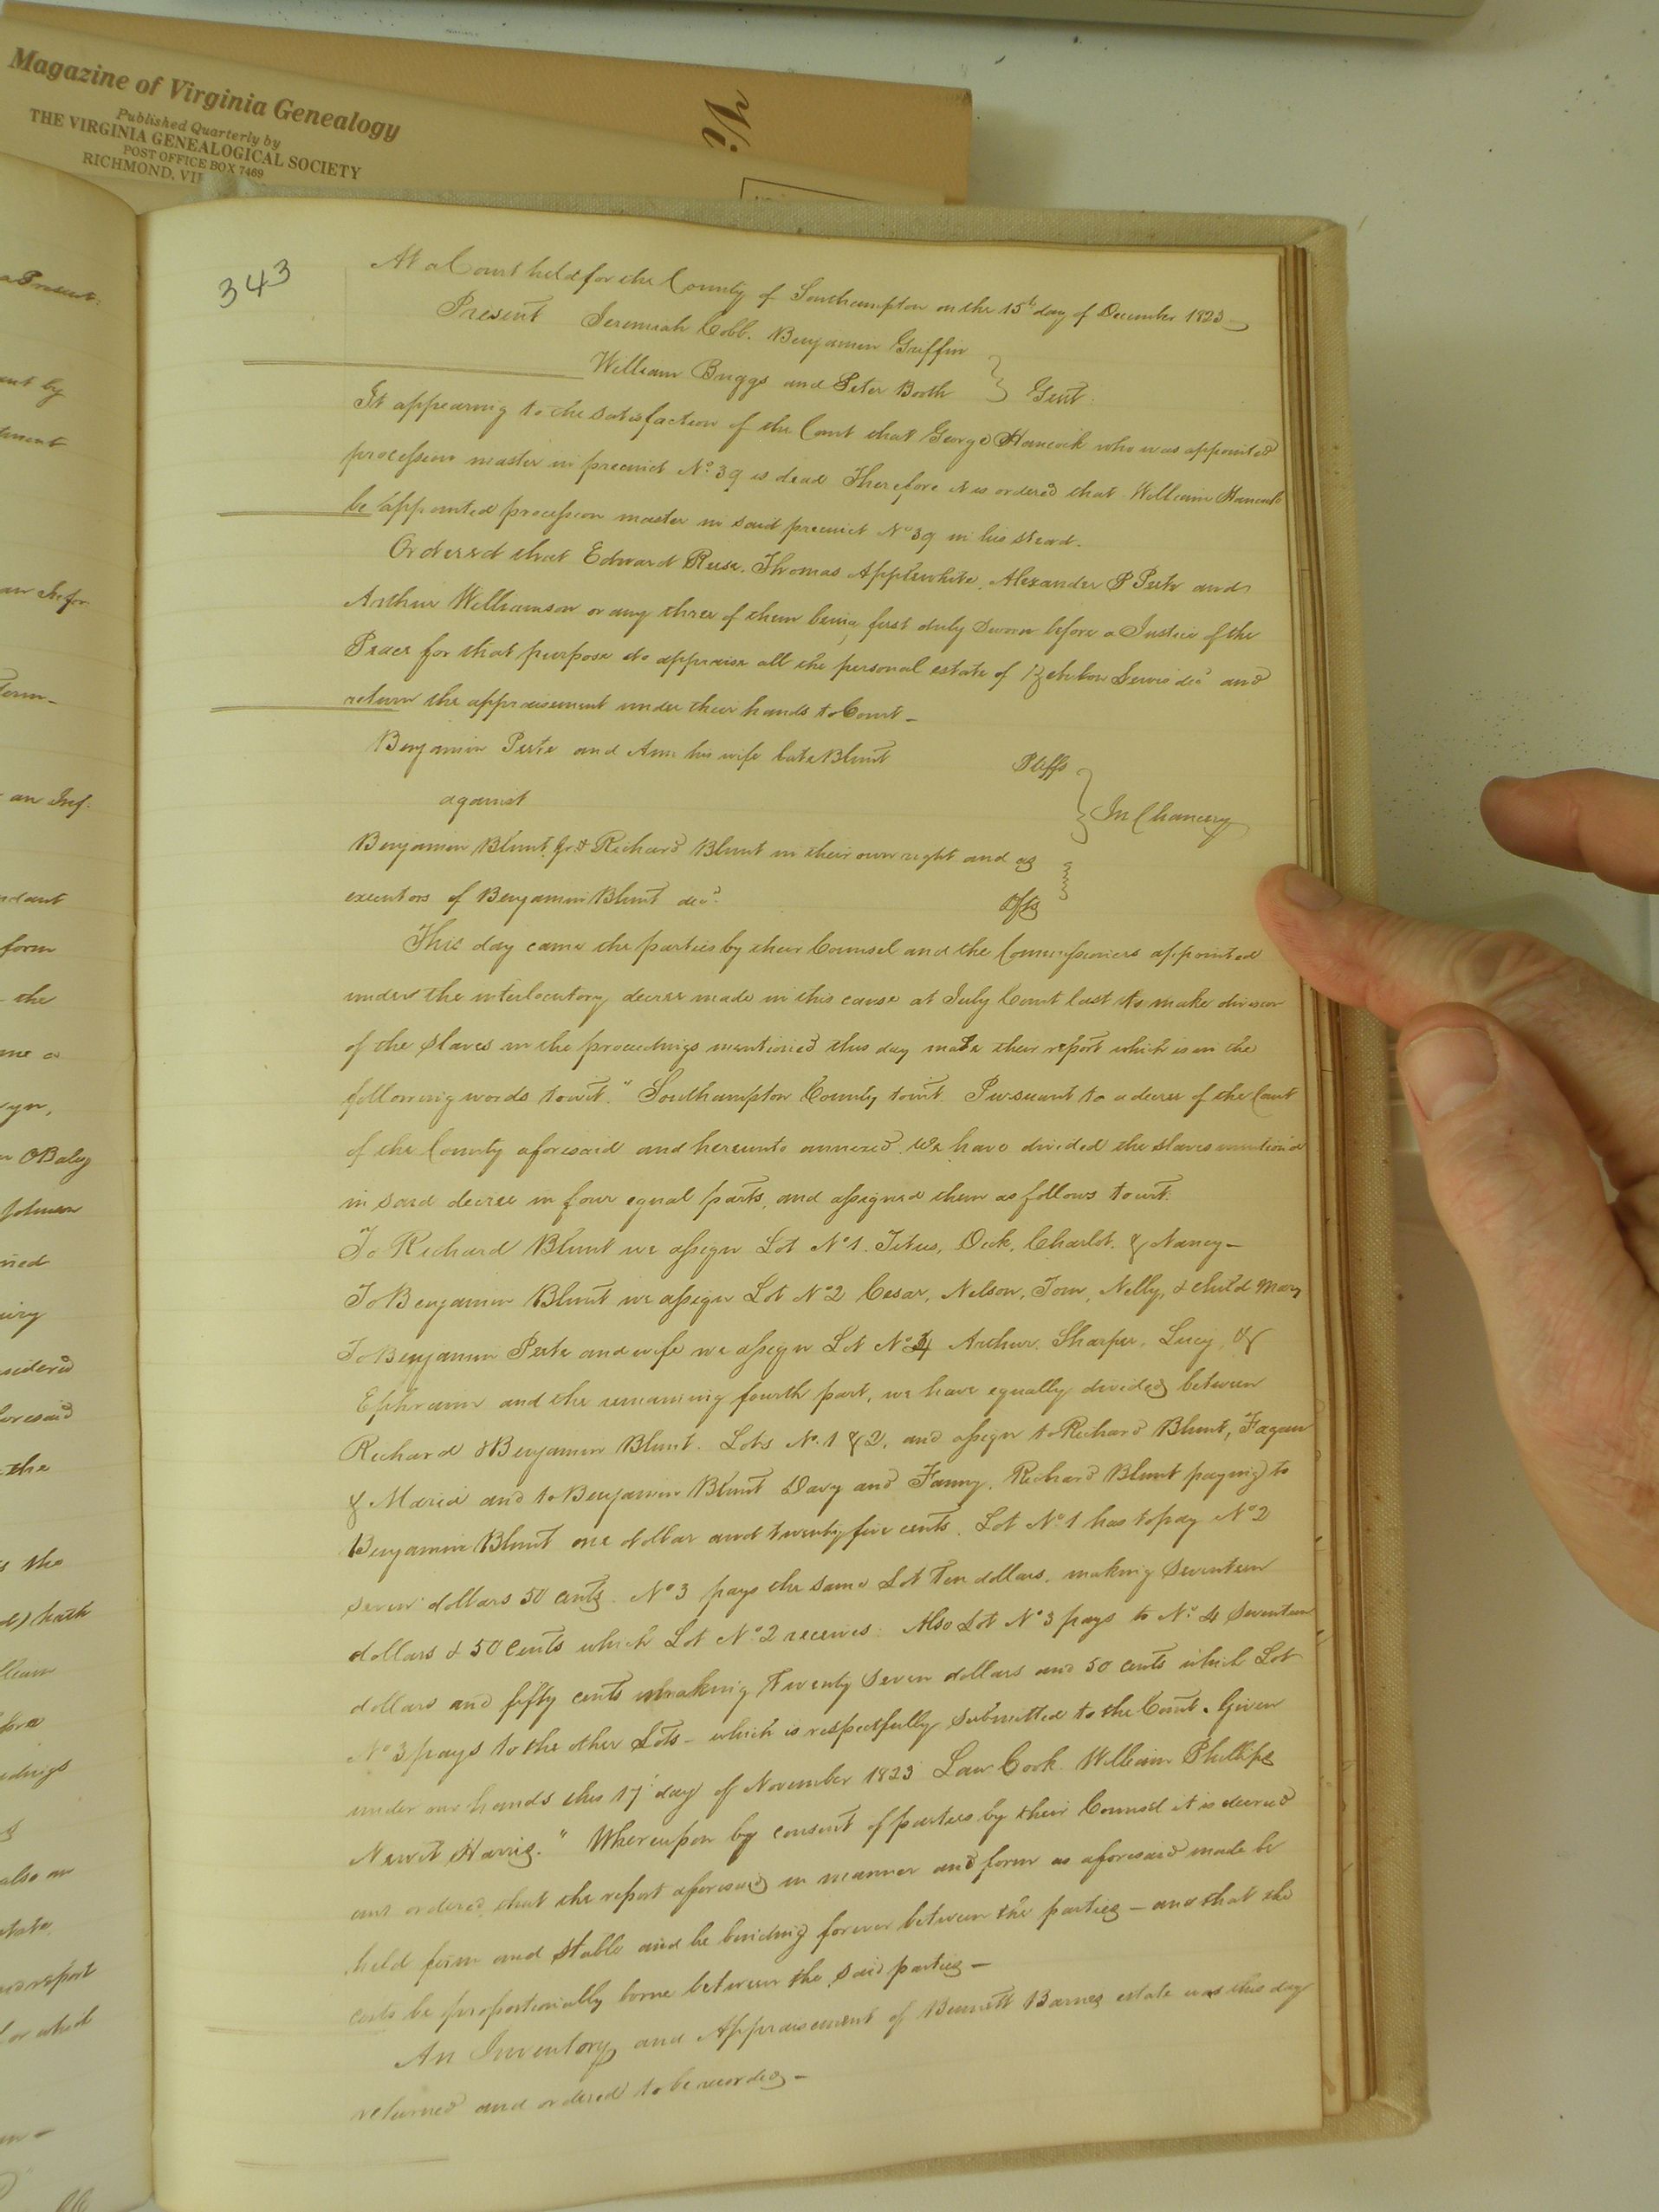 Magazine of Virginia Genealogy
Published Quarterly by
THE VIRGINIA GENEALOGICAL SOCIETY
POST OFFICE BOX 7469
RICHMOND, VI
343
At a Court held for the County of Southampton on the 15th day of December 1823
Present Jeremiah Cobb, Benjamin Griffin
William Briggs and Peter Booth } Gent.
It appearing to the satisfaction of the Court that George Hancock who was appointed
procession master in precinct No. 39 is dead Therefore it is ordered that William Hancock
be appointed procession master in said precinct No 39 in his stead.
Ordered that Edward Reese, Thomas Applewhite, Alexander P Peete and
Arthur Williamson or any three of them being first duly sworn before a Justice of the
Peace for that purpose do appraise all the personal estate of Zebulon Lewis decd and
return the appraisement under their hands to Court -
Benjamin Peete and Ann his wife late Blunt Pltffs
against } In Chancery
Benjamin Blunt Jr. & Richard Blunt in their own right and as
executors of Benjamin Blunt decd. Dfts
This day came the parties by their Counsel and the Commissioners appointed
under the interlocutory decree made in this cause at July Court last to make division
of the slaves in the proceedings mentioned this day made their report which is in the
following words towit. " Southampton County towit. Pursuant to a decree of the Court
of the County aforesaid and hereunto annexed. We have divided the slaves mention'd
in said decree in four equal parts, and assigned them as follows towit.
To Richard Blunt we assign Lot No 1. Titus, Dick, Charlot, & Nancy -
To Benjamin Blunt we assign Lot No 2 Cesar, Nelson, Tom, Nelly, & child Mary
To Benjamin Peete and wife we assign Lot No 4 Arthur, Sharper, Lucy, &
Ephraim and the remaining fourth part, we have equally divided between
Richard & Benjamin Blunt. Lots No. 1 & 2, and assign to Richard Blunt, Fagan
& Maria and to Benjamin Blunt Davy and Fanny, Richard Blunt paying to
Benjamin Blunt one dollar and twenty five cents. Lot No. 1 has to pay No 2
seven dollars 50 cents. No 3 pays the same Lot Ten dollars, making seventeen
dollars & 50 cents which Lot No. 2 receives. Also Lot No 3 pays to No. 4 Seventeen
dollars and fifty cents making Twenty Seven dollars and 50 cents which Lot
No 3 pays to the other Lots - which is respectfully submitted to the Court. Given
under our hands this 17 day of November 1823 Law Cook. William Phillips
Newit Harris." Whereupon by consent of parties by their Counsel it is decreed
and ordered, that the report aforesaid in manner and form as aforesaid made be
held firm and stable and be binding forever between the parties - and that the
costs be proportionally borne between the said parties -
An Inventory and Appraisement of Bennett Barnes estate was this day
returned and ordered to be recorded -